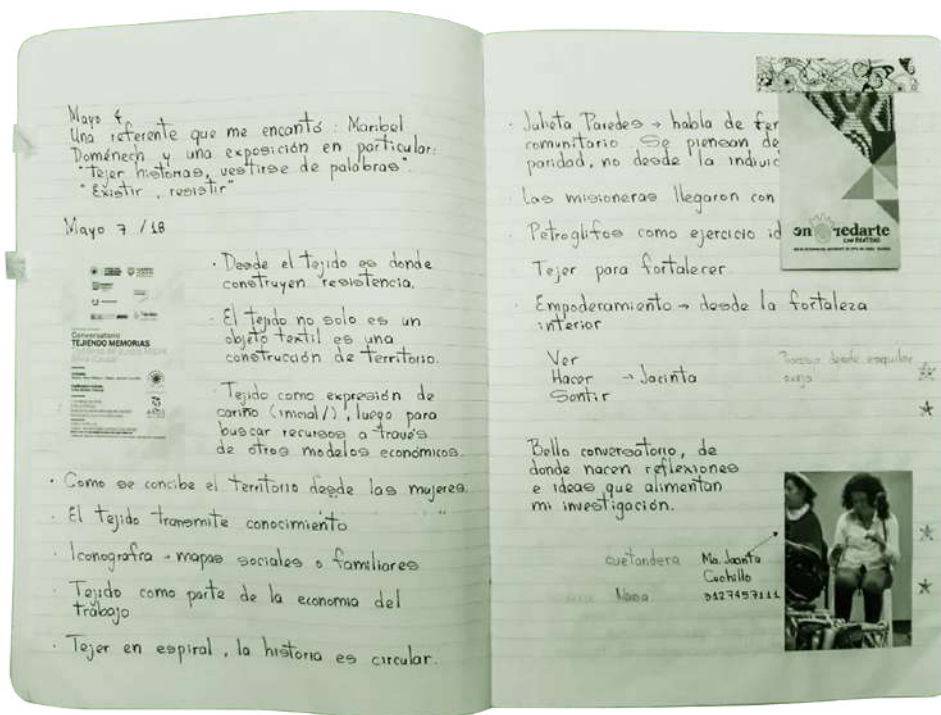 Mayo 4
Una referente que me encantó : Maribel
Doménech y una exposición en particular:
"Tejer historias, vestirse de palabras".
"Existir, resistir"
Mayo 7 / 18
Conversatorio
TEJIENDO MEMORIAS
· Desde el tejido es donde
construyen resistencia.
· El tejido no solo es un
objeto textil es una
construcción de territorio.
Tejido como expresión de
cariño (inicial/), luego para
buscar recursos a través
de otros modelos económicos.
· Como se concibe el territorio desde las mujeres.
· El tejido transmite conocimiento
· Iconografía → mapas sociales o familiares
· Tejido como parte de la economía del
trabajo
· Tejer en espiral, la historia es circular.
· Julieta Paredes → habla de fer
comunitario. Se piensan de
paridad, no desde la indivic
· Las misioneras llegaron con
· Petroglifos como ejercicio id
Tejer para fortalecer
· Empoderamiento → desde la fortaleza
interior
Ver
Hacer → Jacinta
Sentir
Proceso desde esquilar
oveja
Bello conversatorio, de
donde nacen reflexiones
e ideas que alimentan
mi investigación.
cuetandera Ma. Jacinta
Cuchillo
Nasa 3127457111
enredarte